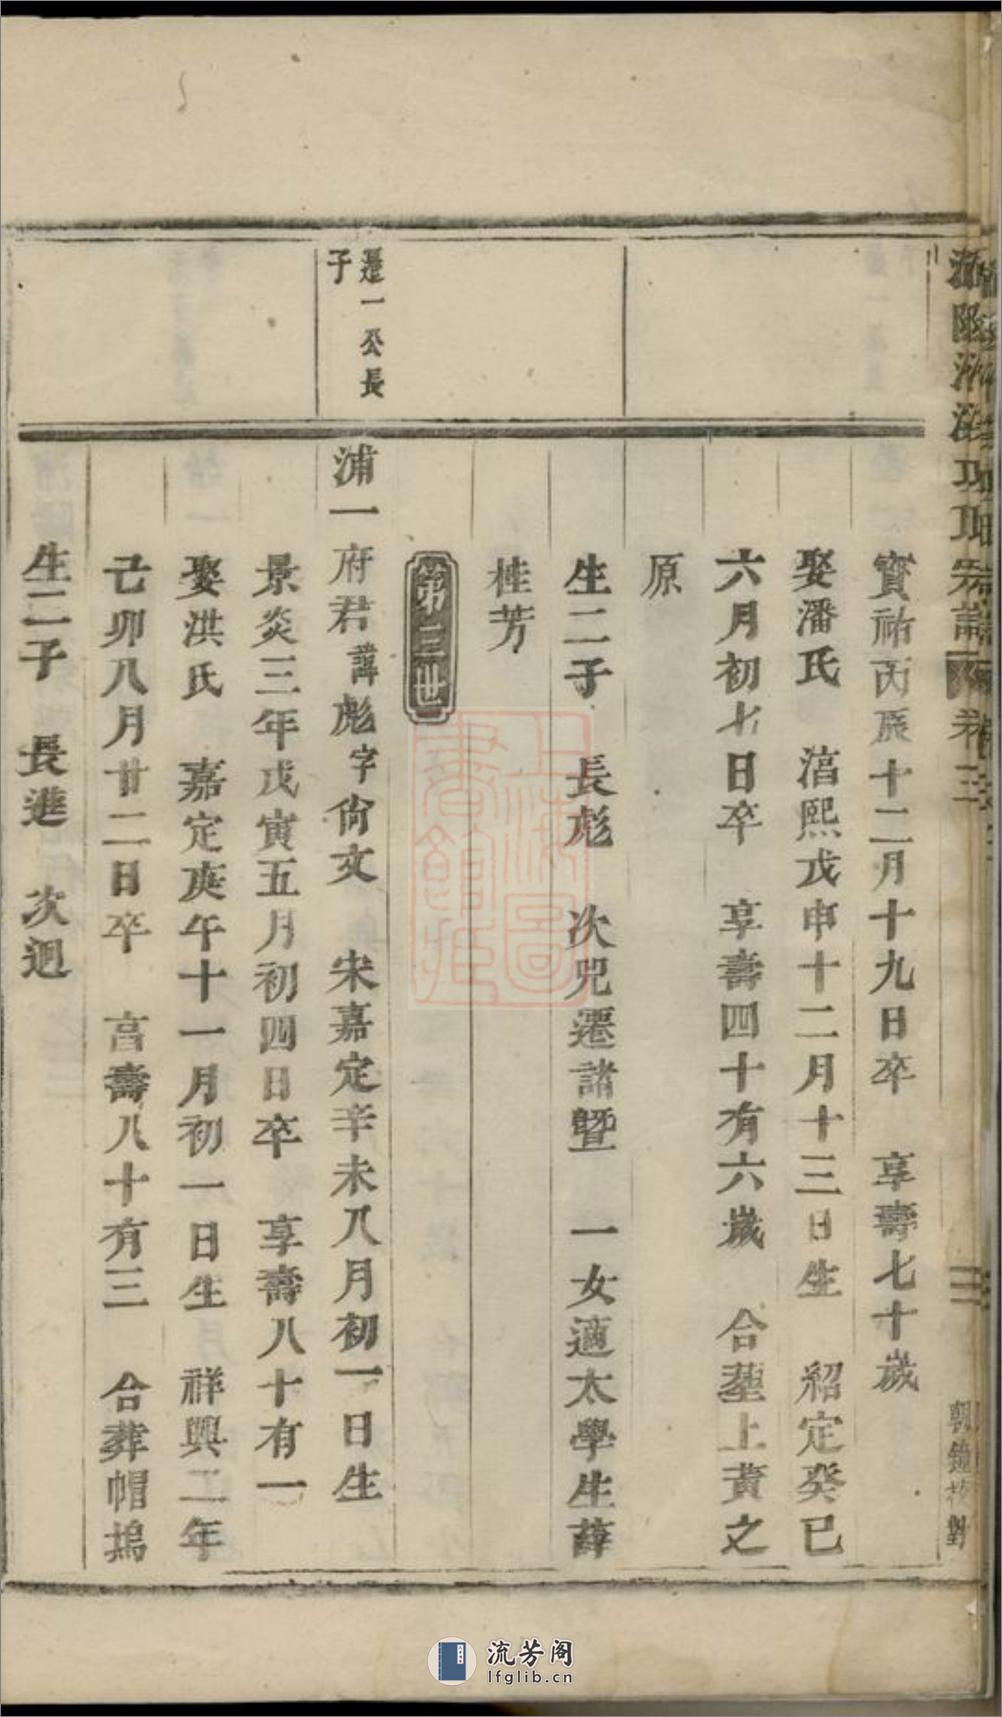 寳祐丙辰十二月十九日卒　享壽七十歲
娶潘氏　淯熙戊申十二月十三日生　紹定癸巳
六月初七日卒　享壽四十有六歲　合塟上黃之
原
生二子　長彪　次兕遷諸暨　一女適太學生薛
桂芳
第三世
遷一公長
子
浦一府君諱彪字尙文　宋嘉定辛未八月初一日生
景炎三年戊寅五月初四日卒　享壽八十有一
娶洪氏　嘉定庚午十一月初一日生　祥興二年
己卯八月廿二日卒　亯壽八十有三　合葬帽塢
生二子　長進　次迥
卷三
二
上海圖書館藏
流芳阁
lfglib.cn